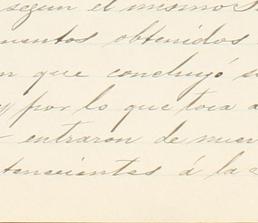 segun el mismo S
mentos obtenidos
n que concluyó s
y por lo que toca a
entraron de nuev
tenecientes á la